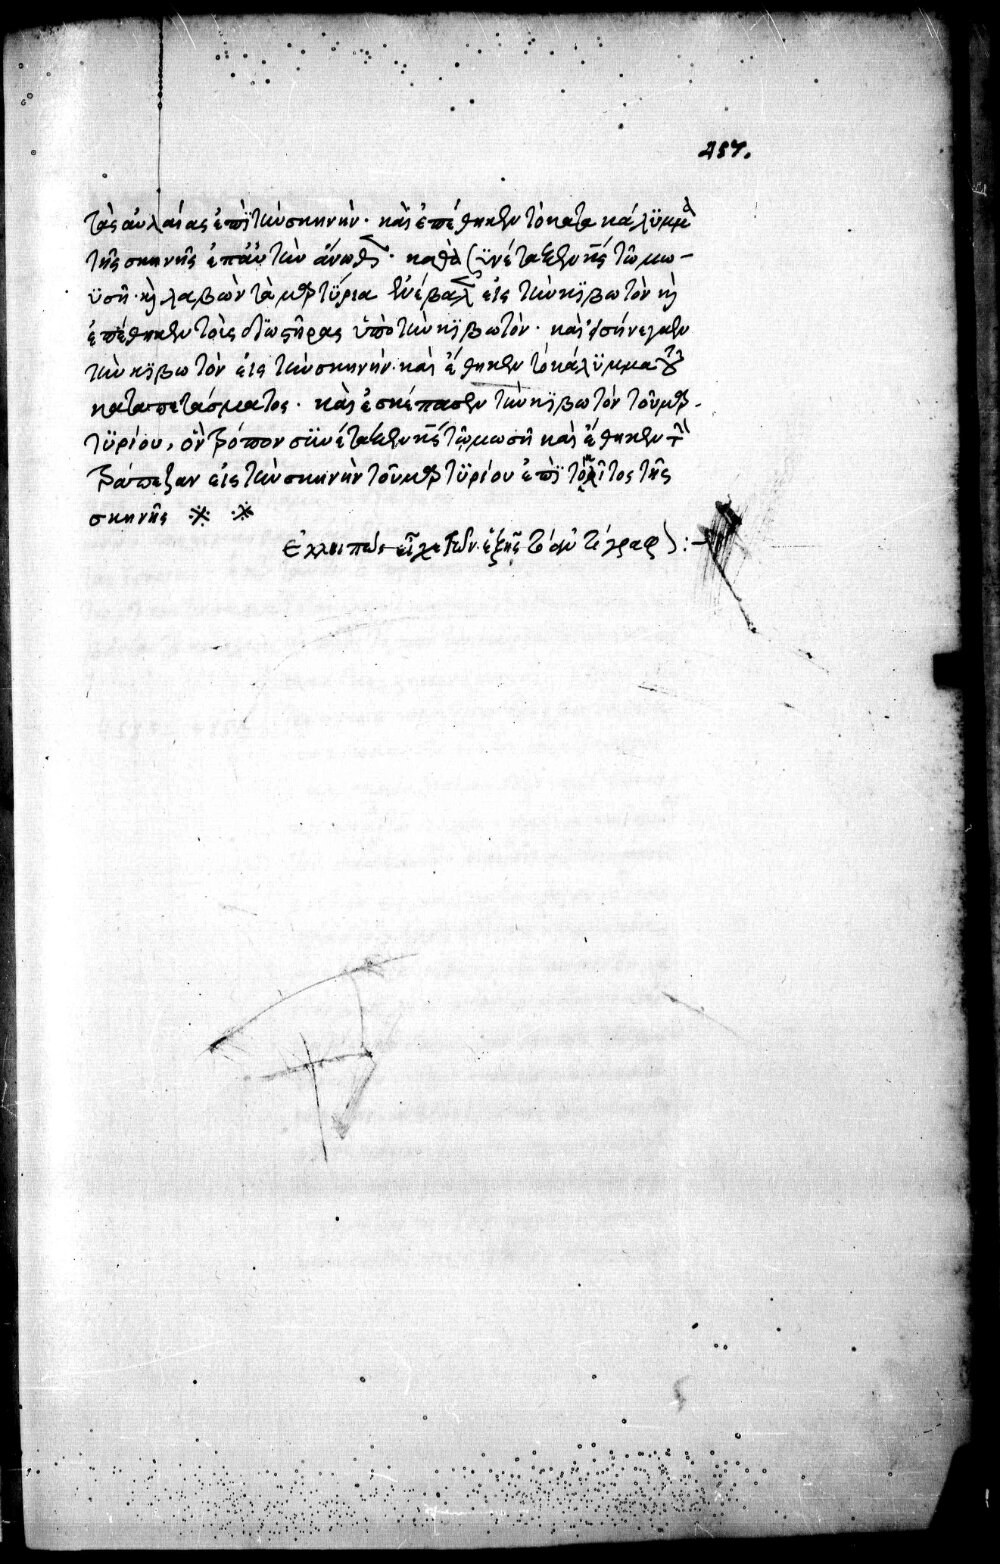 457.
τὰς αὐλαίας ἐπὶ τὴν σκηνήν· καὶ ἐπέθηκεν τὸ κατακάλϋμμα
τῆς σκηνῆς ἐπ' αὐτὴν ἄνωθεν· καθὰ συνέταξεν κ̅ς̅ τῷ μω-
ϋσῆ· κὶ λαβὼν τὰ μαρτύρια ἐνέβαλεν εἰς τὴν κϊβωτὸν κὶ
ἐπέθηκεν τοὺς διωστῆρας ὑπὸ τὴν κϊβωτόν· καὶ εἰσήνεγκεν
τὴν κϊβωτὸν εἰς τὴν σκηνήν· καὶ ἔθηκεν τὸ κάλϋμμα τοῦ
καταπετάσματος· καὶ ἐσκέπασεν τὴν κϊβωτὸν τοῦ μαρ-
τϋρίου, ὃν τρόπον σϋνέταξεν κ̅ς̅ τῷ μωσῆ καὶ ἔθηκεν τὴν
τράπεζαν εἰς τὴν σκηνὴν τοῦ μαρτϋρίου ἐπὶ τὸ κλίτος τῆς
σκηνῆς ※ ※
Ἐλλειπῶς εἶχεν ἑξῆς τὸ ἀντίγραφον :-